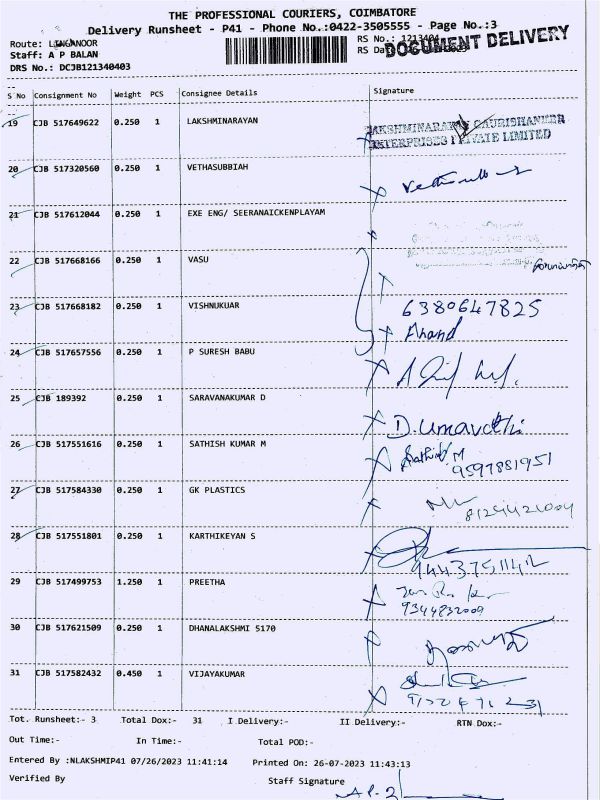 THE PROFESSIONAL COURIERS, COIMBATORE
Delivery Runsheet - P41 - Phone No.:0422-3505555 - Page No.:3
Route: LINGANOOR
RS No.: 1213404
Staff: A P BALAN
RS Da
DOCUMENT DELIVERY
DRS No.: DCJB121340403
S No Consignment No Weight PCS Consignee Details Signature
19 CJB 517649622 0.250 1 LAKSHMINARAYAN
LAKSHMINARAYAN GAURISHANKER
ENTERPRISES PRIVATE LIMITED
20 CJB 517320560 0.250 1 VETHASUBBIAH
21 CJB 517612044 0.250 1 EXE ENG/ SEERANAICKENPLAYAM
22 CJB 517668166 0.250 1 VASU
23 CJB 517668182 0.250 1 VISHNUKUAR
6380647825
Anand
24 CJB 517657556 0.250 1 P SURESH BABU
25 CJB 189392 0.250 1 SARAVANAKUMAR D
D. Umavathi
26 CJB 517551616 0.250 1 SATHISH KUMAR M
Sathish M
9597881951
27 CJB 517584330 0.250 1 GK PLASTICS
28 CJB 517551801 0.250 1 KARTHIKEYAN S
29 CJB 517499753 1.250 1 PREETHA
9344932009
30 CJB 517621509 0.250 1 DHANALAKSHMI 5170
31 CJB 517582432 0.450 1 VIJAYAKUMAR
Tot. Runsheet:- 3 Total Dox:- 31 I Delivery:- II Delivery:- RTN Dox:-
Out Time:- In Time:- Total POD:-
Entered By :NLAKSHMIP41 07/26/2023 11:41:14 Printed On: 26-07-2023 11:43:13
Verified By Staff Signature